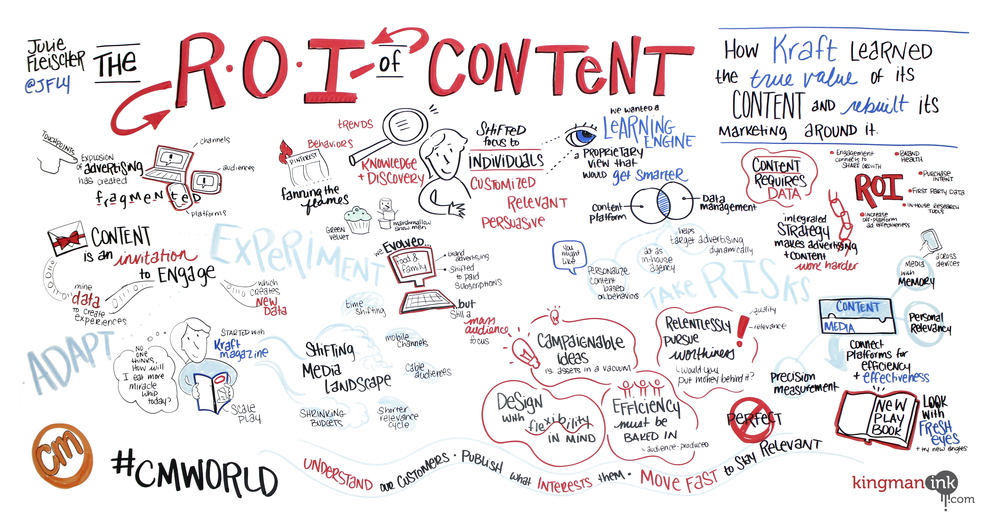 Julie
Fleischer
@JFLY
THE
R·O·I
of
CONTENT
How Kraft LEARNED
the true value of its
CONTENT AND rebuilt its
Marketing AROUND it.
TOUCHPOINTS
channels
EXPLOSION
of ADVERTISING
has created
fragmented
audiences
platforms
Behaviors
PINTEREST
fanning the
flames
GREEN
VELVET
marshmallow
snow men
tRENDS
KNOWLEDGE
+ DISCOVERY
SHiFtED
focus to
INDIVIDUALS
CUSTOMIZED
RELEVANT
PERSUASIVE
we wanted a
LEARNING
ENGINE
a PROPRIETARY
VIEW that
would get smarter
content
platform
Data
management
CONTENT
REQUIRES
DATA
integrated
STRATEGY
makes advertising
+ content
work harder
ENGAGEMENT
connects to
SHARE GROWTH
BRAND
HEALTH
ROI
PURCHASE
INTENT
FIRST PARTY DATA
IN-HOUSE RESEARCH
TOOLS
INCREASE
off-PLATFORM
ad effectiveness
CONTENT
is an invitation
to ENGAGE
mine
data
to create
EXPERIENCES
which
CREATES
NEW
DATA
EXPERIMENT
we EVOLVED...
Food &
Family
brand
advertising
Shifted
to paid
subscriptions
but
Still a
mass
audience
focus
time
Shifting
you
might
like
PERSONALIZE
CONTENT
based
on behaviors
helps
target advertising
dynamically
as as
in-house
agency
TAKE RISKS
MEDIA
with
MEMORY
across
devices
CONTENT
MEDIA
Personal
Relevancy
CONNECT
PLATFORMS for
EFFICIENCY
+ effectiveness
PRECISION
measurement
ADAPT
NO
ONE
THINKS,
HOW will
I eat more
miracle
whip
today?
STARTED with
Kraft
magazine
SCALE
PLAY
SHiFTING
MEDIA
LANDSCAPE
mobile
channels
Cable
audiences
SHRINKING
BUDGETS
Shorter
relevance
cycle
CAMPAIGNABLE
ideas
IS ASSETS IN a VACUUM
RELENTLESSLY
PURSUE
worthiness
quality
relevance
would you
put money behind it?
DESIGN
with flexibility
IN MIND
EFFICIENCY
must be
BAKED IN
audience-produced
PERFECT
NEW
PLAY
BOOK
LOOK
with
FRESH
eyes
+ try new angles
CM
#CMWORLD
UNDERSTAND our CUSTOMERS · PUBLISH what INTERESTS them · MOVE FAST to Stay RELEVANT
kingmanink
.com